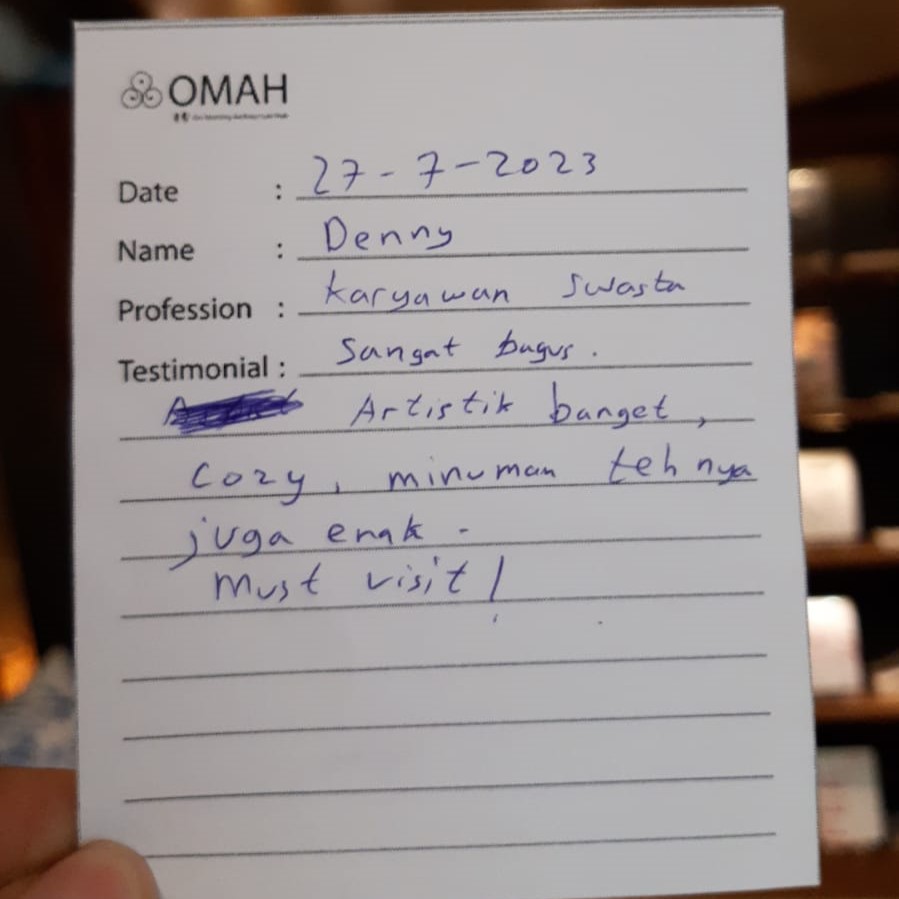 OMAH
Date : 27-7-2023
Name : Denny
Profession : karyawan swasta
Testimonial : Sangat bagus.
Artistik banget,
Cozy, minuman teh nya
juga enak.
Must visit!